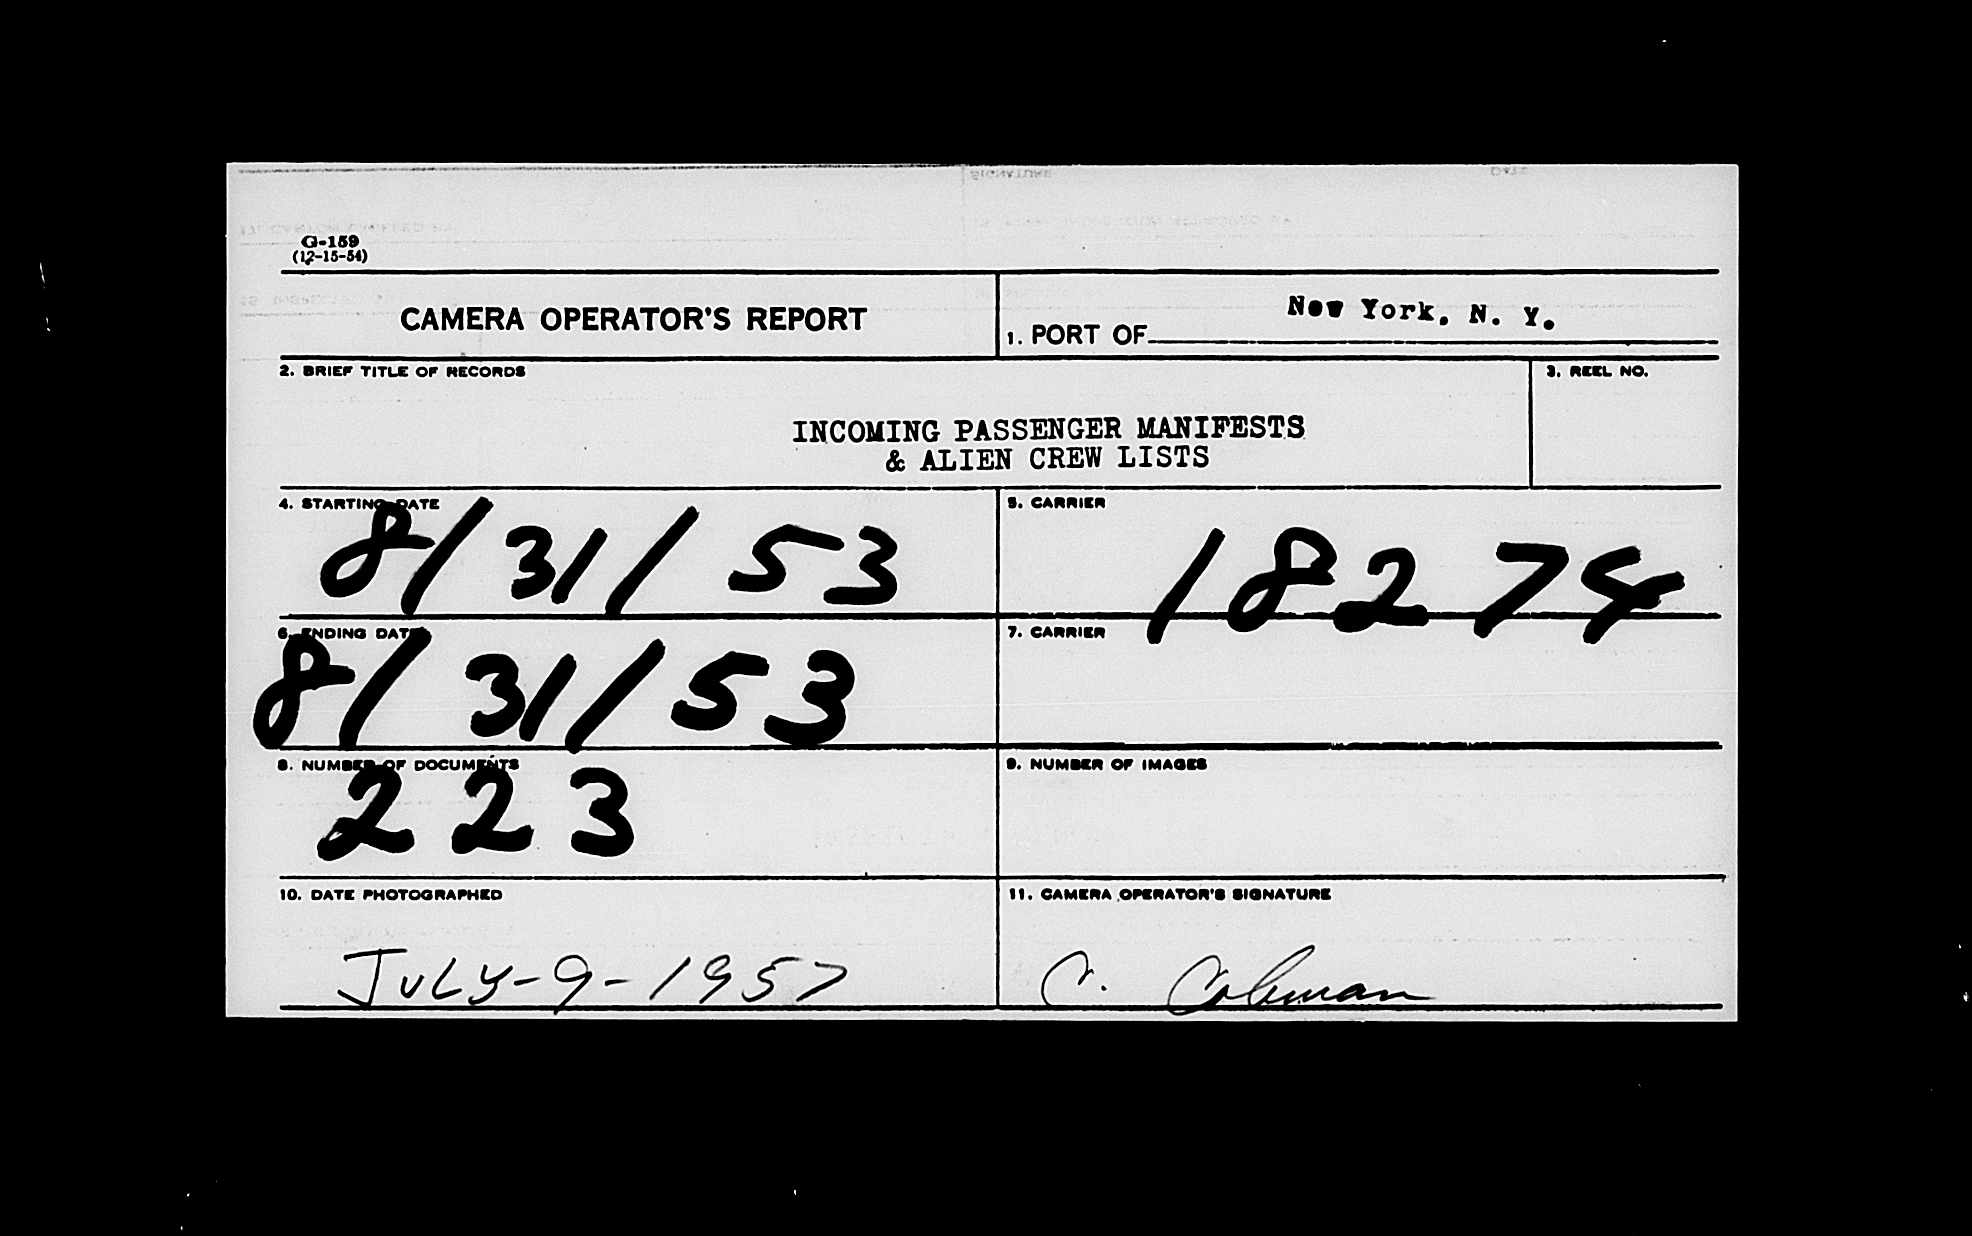 G-159
(12-15-54)
CAMERA OPERATOR'S REPORT
1. PORT OF New York, N. Y.
2. BRIEF TITLE OF RECORDS
3. REEL NO.
INCOMING PASSENGER MANIFESTS
& ALIEN CREW LISTS
4. STARTING DATE
8/31/53
5. CARRIER
18274
6. ENDING DATE
8/31/53
7. CARRIER
8. NUMBER OF DOCUMENTS
223
9. NUMBER OF IMAGES
10. DATE PHOTOGRAPHED
JULY-9-1957
11. CAMERA OPERATOR'S SIGNATURE
C. Coleman
SIGNATURE
DATE